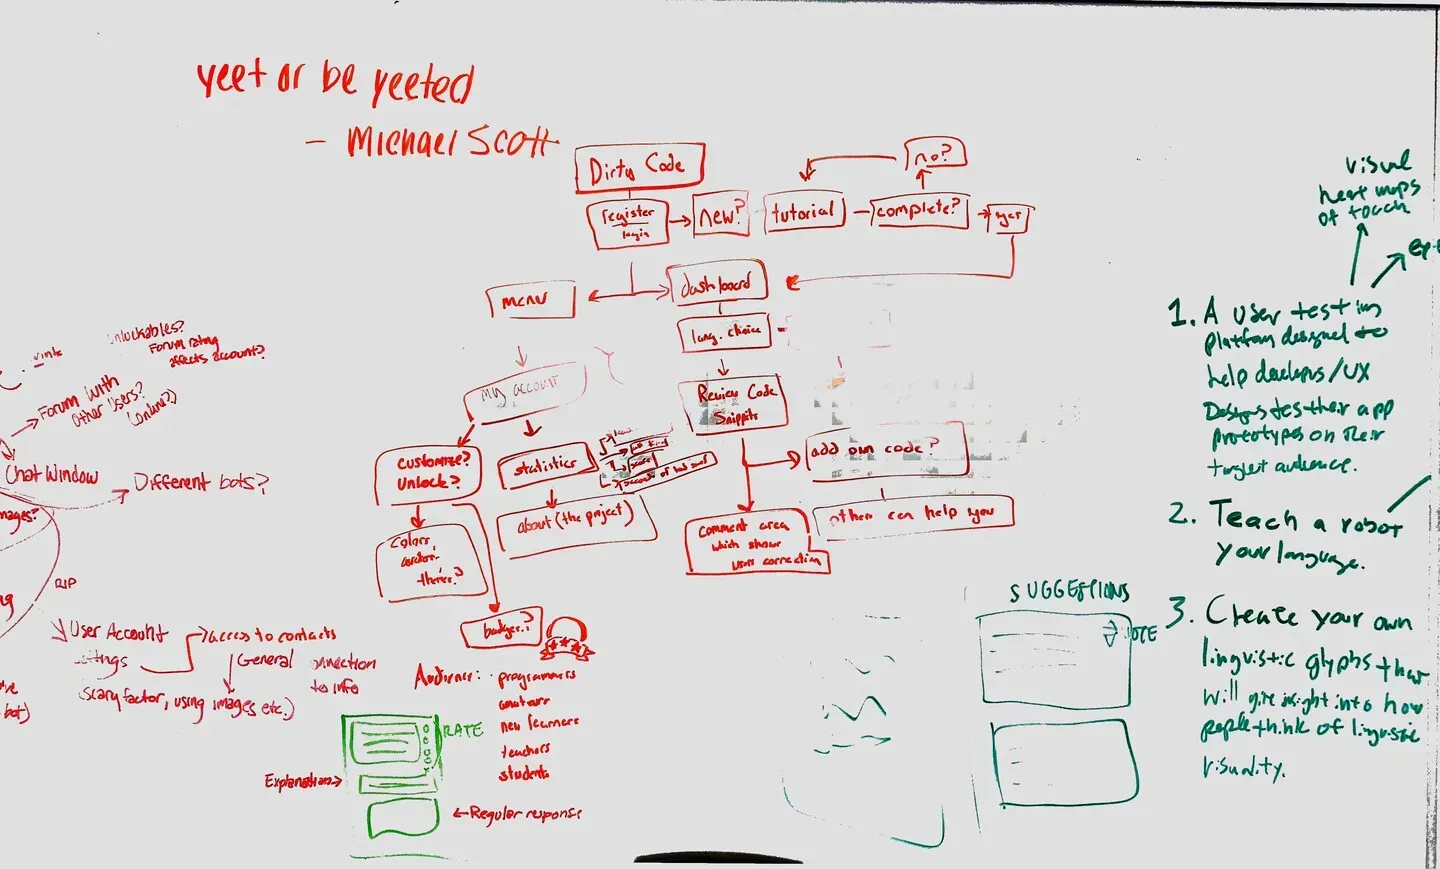 yeet or be yeeted
- Michael Scott
Dirty Code
register
login
new?
tutorial
complete?
no?
yes
menu
dashboard
lang. choice
my account
Review Code
Snippits
customize?
unlock?
statistics
about (the project)
add own code?
other can help you
comment area
which shows
users connection
Colors,
themes?
badges?
Audience:
programmers
amateurs
new learners
teachers
students
RATE
Explanation→
←Regular response
unlockables?
Forum rating
affects account?
Forum with
other users?
(online?)
Chat Window
Different bots?
images?
RIP
User Account
settings
access to contacts
General connection
to info
(scary factor, using images etc.)
bot)
SUGGESTIONS
VOTE
visual
heat maps
of touch
1. A user testing
platform designed to
help developers/UX
Designers test their app
prototypes on their
target audience.
2. Teach a robot
your language.
3. Create your own
linguistic glyphs that
will give insight into how
people think of linguistic
visuality.